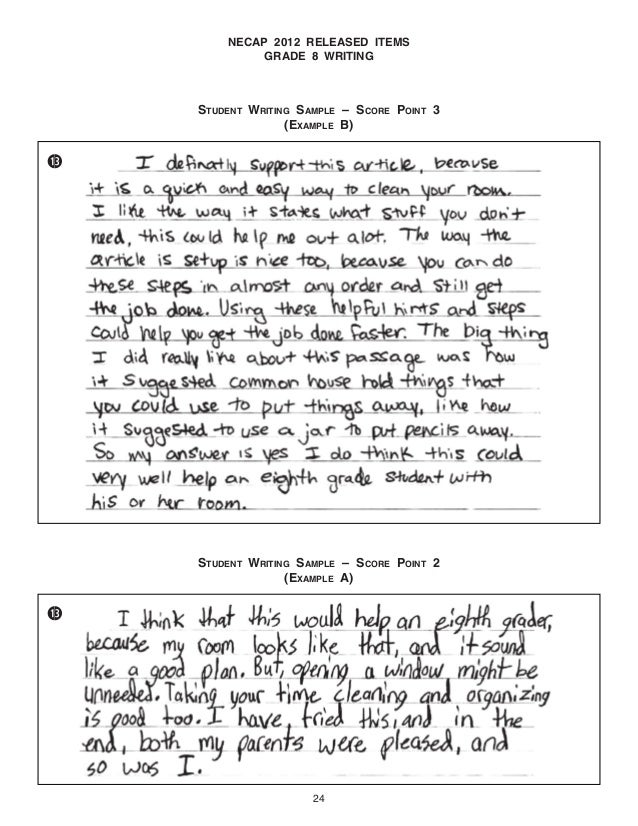 NECAP 2012 RELEASED ITEMS
GRADE 8 WRITING
STUDENT WRITING SAMPLE – SCORE POINT 3
(EXAMPLE B)
⓭ I definatly support this article, because
it is a quick and easy way to clean your room.
I like the way it states what stuff you don't
need, this could help me out alot. The way the
article is setup is nice too, because you can do
these steps in almost any order and still get
the job done. Using these helpful hints and steps
could help you get the job done faster. The big thing
I did really like about this passage was how
it suggested common house hold things that
you could use to put things away, like how
it suggested to use a jar to put pencils away.
So my answer is yes I do think this could
very well help an eighth grade student with
his or her room.
STUDENT WRITING SAMPLE – SCORE POINT 2
(EXAMPLE A)
⓭ I think that this would help an eighth grader,
because my room looks like that, and it sound
like a good plan. But, opening a window might be
unneeded. Taking your time cleaning and organizing
is good too. I have, tried this, and in the
end, both my parents were pleased, and
so was I.
24